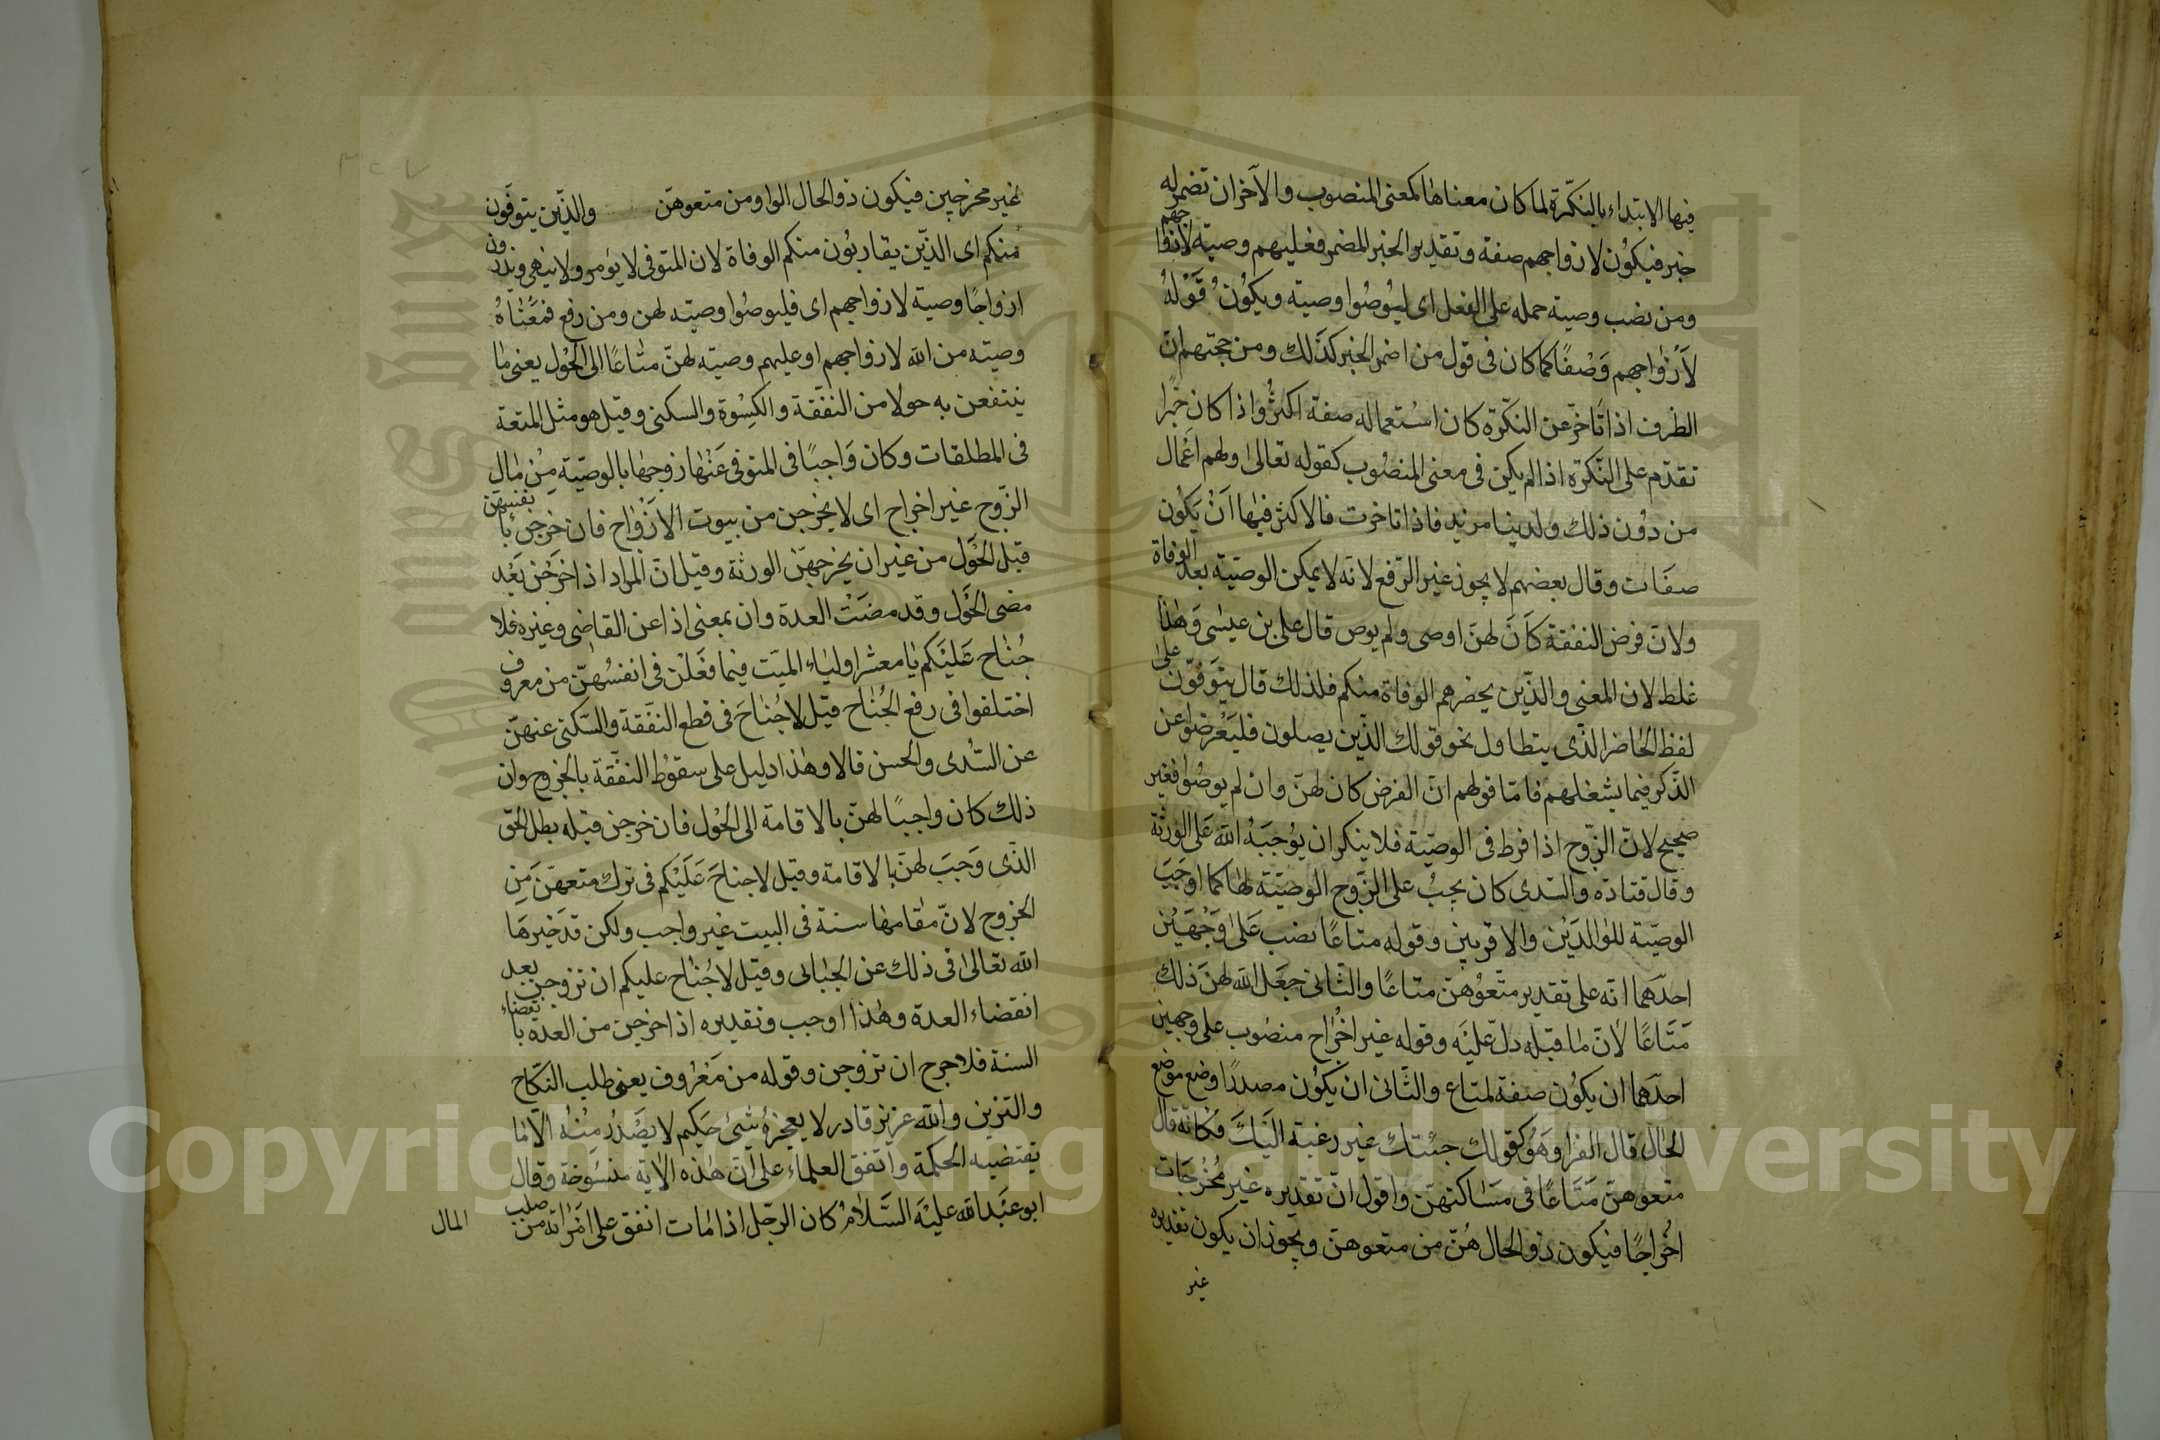 فيها الابتداء بالنكّرة لما كان معناها كمعنى المنصوب والآخر ان تضمر له
خبر فيكون لازواجهم صفة وتقدير الخبر المضمر فعليهم وصيّة لازواجهم
ومن نصب وصية حمله على الفعل اى ليوُصُوا وصيته ويكوُنُ قَوْلهُ
لأَزْواجهم وَصْفًا كما كان فى قول من اضمر الخبر كذَلك ومن حجتهم انّ
الظرف اذا تَأخرّ عن النكّرة كان استعماله صفة اكثرُ واذا كان خبرًا
تقدّم على النّكرة اذا لم يكن فى معنى المنصُوب كقوله تعالى ولهم اعْمال
من دوُن ذلك ولدينا مزيد فاذا تاخرت فالاكثر فيها اَنْ يَكوُن
صفَات وقال بعضهم لا يجوز غير الرّفع لانه لا يمكن الوصيّة بعد الوفاة
ولانّ فرض النفقة كَانَ لهنّ اوصى ولم يوص قال على بن عيسٰى وَهٰذا
غلط لان المعنى والذّين يحضرهم الوفاة منكم فلذلك قال يتَوَفّوّن على
لفظ الحٰاضر الذّى يتطاول نحو قولك الذّين يصلون فليَعْرضوا عن
الذّكر فيما يشغلهم فامّا قولهم انّ الفرض كان لهنّ وان لم يوصُوا فغير
صحيح لانّ الزّوج اذا فرط فى الوصيّة فلا ينكر ان يوُجبَهُ الله عَلى الورثة
وقال قتادة والسّدى كان يجبُ على الزّوج الوصيّة لها كما اوجَبَ
الوصيّة للوالدَيْن والاقربين وقوله متاعًا نصب عَلىٰ وَجْهَيْن
احدهما انّه على تقدير متّعوُهنّ متاعًا والثّانى جعَل الله لهنّ ذلك
مَتَاعًا لانّ ما قبله دلّ عليْه وقوله غير اخْرٰاج منصوب على وجهين
احدّهما ان يكوُن صفة لمتاع والثّانى ان يكوُن مصدرًا وضع موضع
الحال قال الفرا وَهوُ كقولك جئتك غير رغبة اليْك فكانّه قال
متعوهنّ مَتَاعًا فى مسَاكنهنّ واقول انّ تقديره غير مُخْرجَات
اخْراجًا فيكون ذو الحال هُنّ من متعوهنّ ويجوز ان يكون تقديره
غير
غير مخرجين فيكون ذو الحال الواو من متعوهنّ والذّين يتوفّون
منكم اى الذّين يقاربوُن منكم الوفاة لان المتوفى لا يوُمر ولا ينهى ويذرون
ازواجًا وصية لازواجهم اى فليوصُوا وصيّة لهن ومن رفع فمعْنَاهُ
وصيّه من الله لازواجهم او عليهم وصيّة لهنّ متاعًا الى الحْول يعنى ما
ينتفعن به حولا من النفقة والكِسْوة والسكنى وقيل هو مثل المتعة
فى المطلقات وكان وَاجبًا فى المتوفى عَنْها زوجها بالوصيّة مِنْ مٰال
الزّوج غير اخراج اى لا يخرجن من بيوت الازْوٰاج فان خرجن بانفسهن
قبل الحَوْل من غير ان يخرجهّن الورثة وقيل انّ المراد اذا خرجْن بَعْد
مضى الحَوْل وقد مضَتْ العدة وان بمعنى اذا عن القاضى وغيره فلا
جُنٰاح عَليْكم يٰا معشر اوليٰاء الميّت فيما فعَلْن فى انفسُهنّ من معروف
اختلفوا فى رفع الجُنٰاح قيل لا جُنٰاحَ فى قطع النفَقة والسّكنى عنهنّ
عن السّدى والحسن قالا وهٰذا دليل على سقوُط النفقة بالخروج وان
ذلك كان واجبًا لهنّ بالاقامة الى الحْول فان خرجن قبله بطل الحقّ
الذّى وَجبَ لهنّ بالاقامة وقيل لا جناحَ عَليْكم فى ترك متعهنّ مِن
الخروج لانّ مقامها سنة فى البيت غير واجب ولكن قد خيّرهَا
الله تعالىٰ فى ذلك عن الجبائى وقيل لا جُنٰاح عليكم ان تزوجن بعد
انقضاء العدة وهٰذا اوجب وتقديره اذا خرجن من العدة بانقضاء
السنة فلا حرج ان تزوجن وقوله من مَعْروف يعنى طلب النّكاح
والتزين والله عزيز قادر لا يعجزهُ شئ حَكيم لا يصْدرُ مِنْهُ الّا ما
يقتضيه الحكمة واتفق العلماء على انّ هذه الآية منسوُخة وقال
ابو عبْد الله عليْه السَّلامُ كان الرجّل اذا مٰات انفق على امْراته من صلب
المال